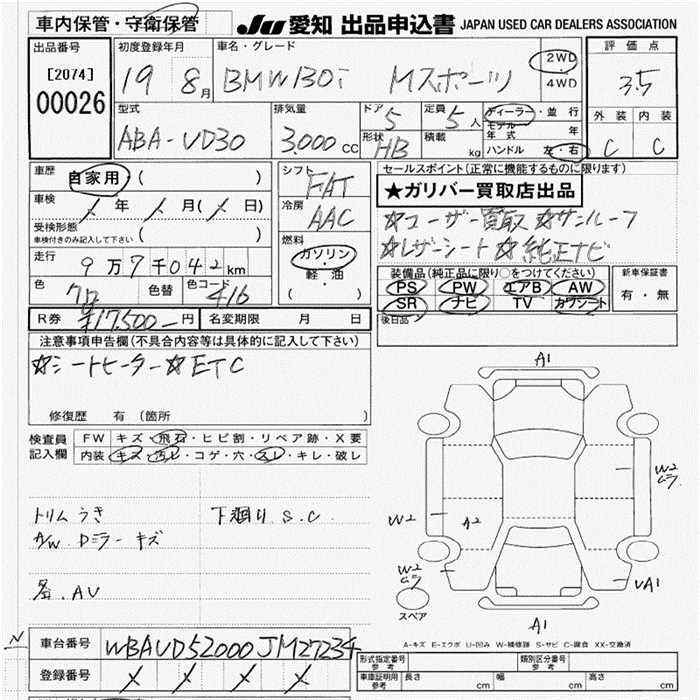 車内保管・守衛保管
JU 愛知 出品申込書 JAPAN USED CAR DEALERS ASSOCIATION
出品番号
[2074]
00026
初度登録年月
19 8月
車名・グレード
BMW130i Mスポーツ
2WD
4WD
評価点
3.5
外装 内装
C C
型式
ABA-UD30
排気量
3.000 CC
ドア 5
形状 HB
定員 5人
積載 kg
ディーラー・並行
モデル年式 年
ハンドル 左・右
車歴 自家用・( )
車検 年 月( 日)
受検形態
車検付きのみ記入して下さい ( )
走行
9万7千042km
色 色替 色コード
416
シフト
FAT
冷房
AAC
燃料
ガソリン
・
軽・油
( )
セールスポイント(正常に機能するものに限ります)
★ガリバー買取店出品
☆ユーザー買取 ☆サンルーフ
☆レザーシート☆純正ナビ
装備品(純正品に限り○をつけてください)
PS PW エアB AW
SR ナビ TV カワシート
新車保証書
有・無
後日品
R券 ¥17,500-円 名変期限 月 日
注意事項申告欄(不具合内容等は具体的に記入して下さい)
☆シートヒーター☆ETC
修復歴 有(箇所
検査員記入欄
FW キズ・飛石・ヒビ割・リペア跡・X要
内装 キズ・汚レ・コゲ・穴・スレ・キレ・破レ
トリムうき 下廻り S.C
A/W.Dミラー キズ
AV
A1
W2
W2
A2
W2
UA1
A1
スペア
A-キズ E-エクボ U-凹み W-補修跡 S-サビ C-腐食 XX-交換済
N
車台番号 WBAUD52000JM27234
登録番号
形式指定番号
参考
類別区分番号
参考
車庫証明用
参考
長さ cm 幅 cm 高さ cm